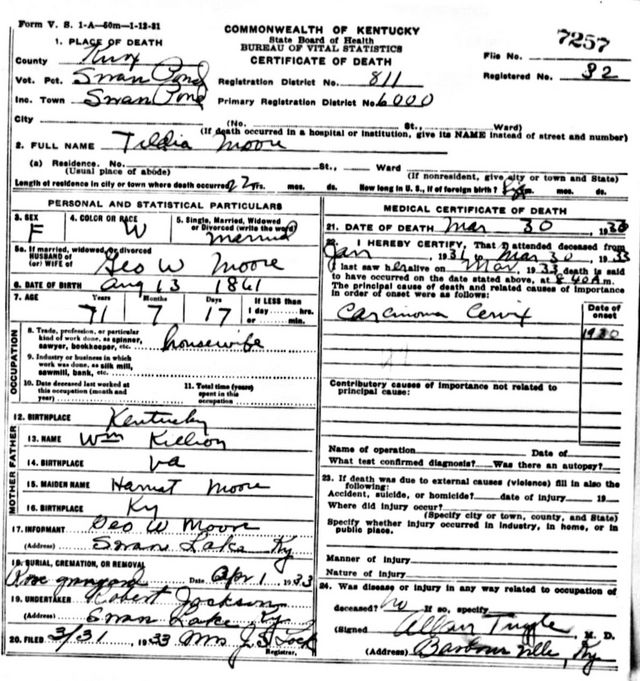 Form V. S. 1-A—50m—1-12-31
COMMONWEALTH OF KENTUCKY
State Board of Health
BUREAU OF VITAL STATISTICS
CERTIFICATE OF DEATH
7257
File No.
Registered No. 32
1. PLACE OF DEATH
County Knox
Vot. Pct. Swan Pond
Inc. Town Swan Pond
Registration District No. 811
Primary Registration District No. 6000
City (No. St., Ward)
(If death occurred in a hospital or institution, give its NAME instead of street and number)
2. FULL NAME Tildia Moore
(a) Residence. No. St., Ward
(Usual place of abode) (If nonresident, give city or town and State)
Length of residence in city or town where death occurred 22 yrs. mos. ds. How long in U. S., if of foreign birth? yrs. mos. ds.
PERSONAL AND STATISTICAL PARTICULARS
3. SEX 4. COLOR OR RACE 5. Single, Married, Widowed
or Divorced (write the word)
F W married
5a. If married, widowed, or divorced
HUSBAND of
(or) WIFE of Geo W Moore
6. DATE OF BIRTH Aug 13 1861
7. AGE Years Months Days If LESS than
1 day hrs.
or min.
71 7 17
OCCUPATION
8. Trade, profession, or particular
kind of work done, as spinner,
sawyer, bookkeeper, etc. housewife
9. Industry or business in which
work was done, as silk mill,
sawmill, bank, etc.
10. Date deceased last worked at
this occupation (month and
year)
11. Total time (years)
spent in this
occupation
12. BIRTHPLACE Kentucky
MOTHER FATHER
13. NAME Wm Killion
14. BIRTHPLACE Va
15. MAIDEN NAME Harriet Moore
16. BIRTHPLACE Ky
17. INFORMANT Geo W Moore
(Address) Swan Lake Ky
18. BURIAL, CREMATION, OR REMOVAL
graveyard Date Apr 1 1933
19. UNDERTAKER Robert Jackson
(Address) Swan Lake Ky
20. FILED 3/31 1933 Mrs J. S. Lock
Registrar.
MEDICAL CERTIFICATE OF DEATH
21. DATE OF DEATH Mar 30 193
22. I HEREBY CERTIFY, That I attended deceased from
Jan 1931 to Mar 30 1933
I last saw her alive on Mar. 1933 death is said
to have occurred on the date stated above, at 8:40 A m.
The principal cause of death and related causes of importance
in order of onset were as follows:
Date of
onset
Carcinoma Cervix 1930
Contributory causes of importance not related to
principal cause:
Name of operation Date of
What test confirmed diagnosis? Was there an autopsy?
23. If death was due to external causes (violence) fill in also the
following:
Accident, suicide, or homicide? date of injury 19
Where did injury occur?
(Specify city or town, county, and State)
Specify whether injury occurred in industry, in home, or in
public place.
Manner of injury
Nature of injury
24. Was disease or injury in any way related to occupation of
deceased? no If so, specify
(Signed) Tuggle, M. D.
(Address) Barbourville, Ky